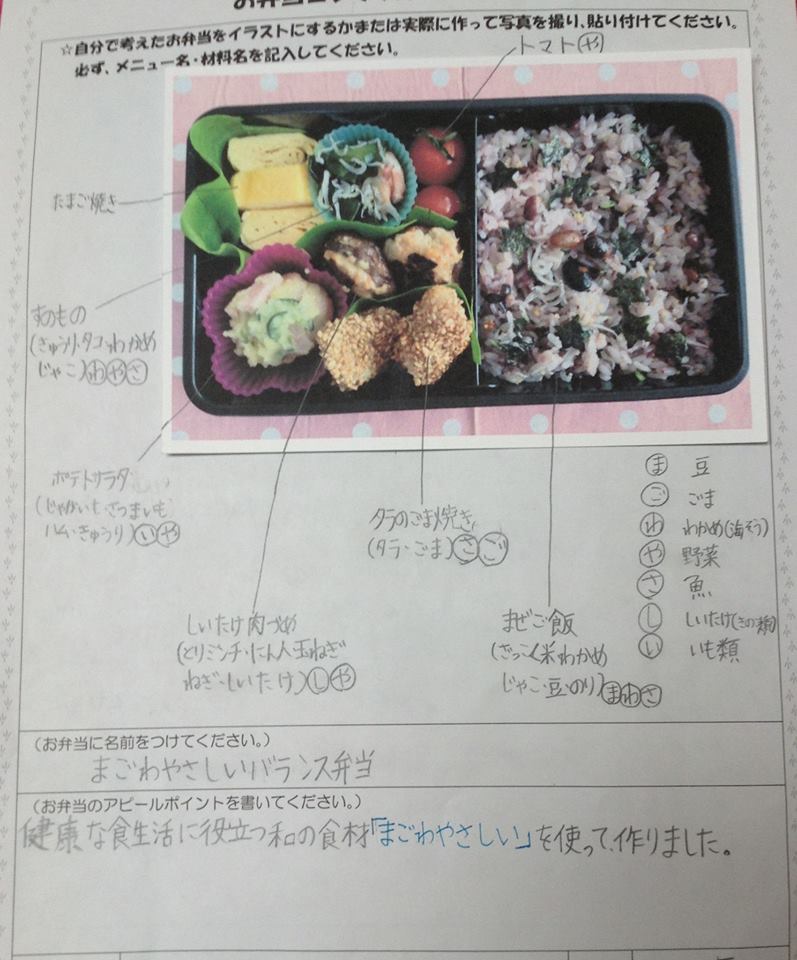 ☆自分で考えたお弁当をイラストにするかまたは実際に作って写真を撮り、貼り付けてください。
必ず、メニュー名・材料名を記入してください。
トマトや
たまご焼き
すのもの
(きゅうり・タコ・わかめ
じゃこ)わやさ
ポテトサラダ
(じゃがいも・さつまいも
ハム・きゅうり)いや
タラのごま焼き
(タラ・ごま)さご
しいたけ肉づめ
(とりミンチ・にん人・玉ねぎ
ねぎ・しいたけ)しや
まぜご飯
(ざっこく米・わかめ
じゃこ・豆・のり)まわさ
ま 豆
ご ごま
わ わかめ(海そう)
や 野菜
さ 魚
し しいたけ(きの類)
い いも類
(お弁当に名前をつけてください。)
まごわやさしいバランス弁当
(お弁当のアピールポイントを書いてください。)
健康な食生活に役立つ和の食材「まごわやさしい」を使って、作りました。